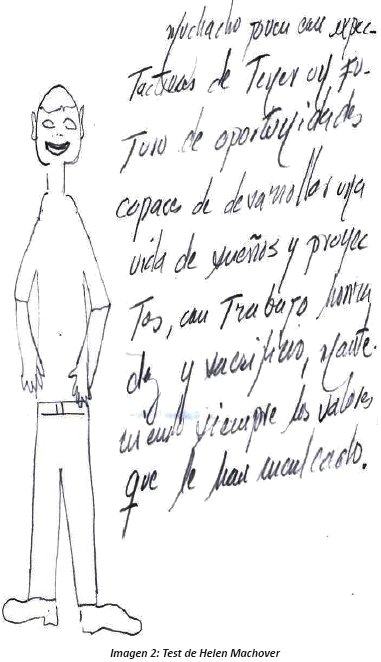 Muchacho joven con expec-
tactivas de Tener un Fu-
Turo de oportunidades
capaces de desarrollar una
vida de sueños y proyec
Tos, con Trabajo honra
dez y sacrificio, mante-
niendo siempre los valores
que le han inculcado.
Imagen 2: Test de Helen Machover